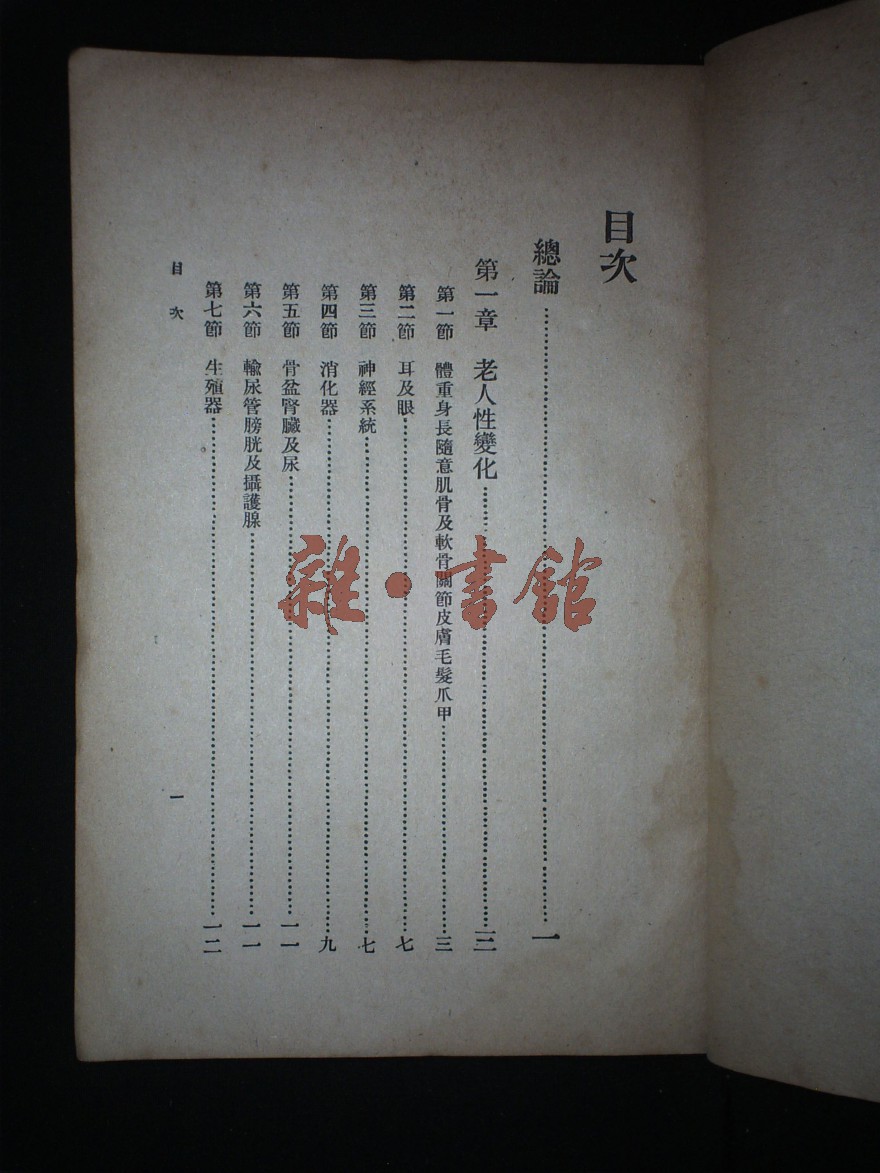 目次
總論⋯⋯⋯⋯⋯⋯⋯⋯一
第一章 老人性變化⋯⋯⋯⋯⋯⋯⋯⋯三
第一節 體重身長隨意肌骨及軟骨關節皮膚毛髮爪甲⋯⋯⋯⋯⋯⋯⋯⋯三
第二節 耳及眼⋯⋯⋯⋯⋯⋯⋯⋯七
第三節 神經系統⋯⋯⋯⋯⋯⋯⋯⋯七
第四節 消化器⋯⋯⋯⋯⋯⋯⋯⋯九
第五節 骨盆腎臟及尿⋯⋯⋯⋯⋯⋯⋯⋯一一
第六節 輸尿管膀胱及攝護腺⋯⋯⋯⋯⋯⋯⋯⋯一一
第七節 生殖器⋯⋯⋯⋯⋯⋯⋯⋯一二
目次 一
雜·書館